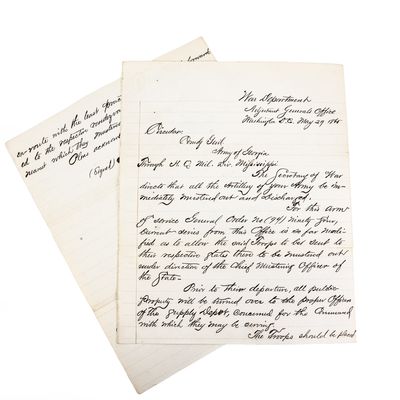 War Department
Adjutant Generals Office
Washington D.C. May 29 1865
Circular
Comdg Genl
Army of Georgia
Through H. Q. Mil. Div. Mississippi
The Secretary of War
directs that all the Artillery of your Army be im-
mediately mustered out and Discharged.
For this arm
of service General Order No (94) Ninety four,
current series from this Office is so far modi-
fied as to allow the said Troops to be sent to
their respective states there to be mustered out
under direction of the Chief Mustering Officer of
the State-
Prior to their departure, all public
property will be turned over to the proper Officers
of the Supply Depot, concerned for the Command
with which they may be serving.
The Troops should be placed
en route with the least
ed to the respective rendezvous
nearest which they mustered
(Signed)